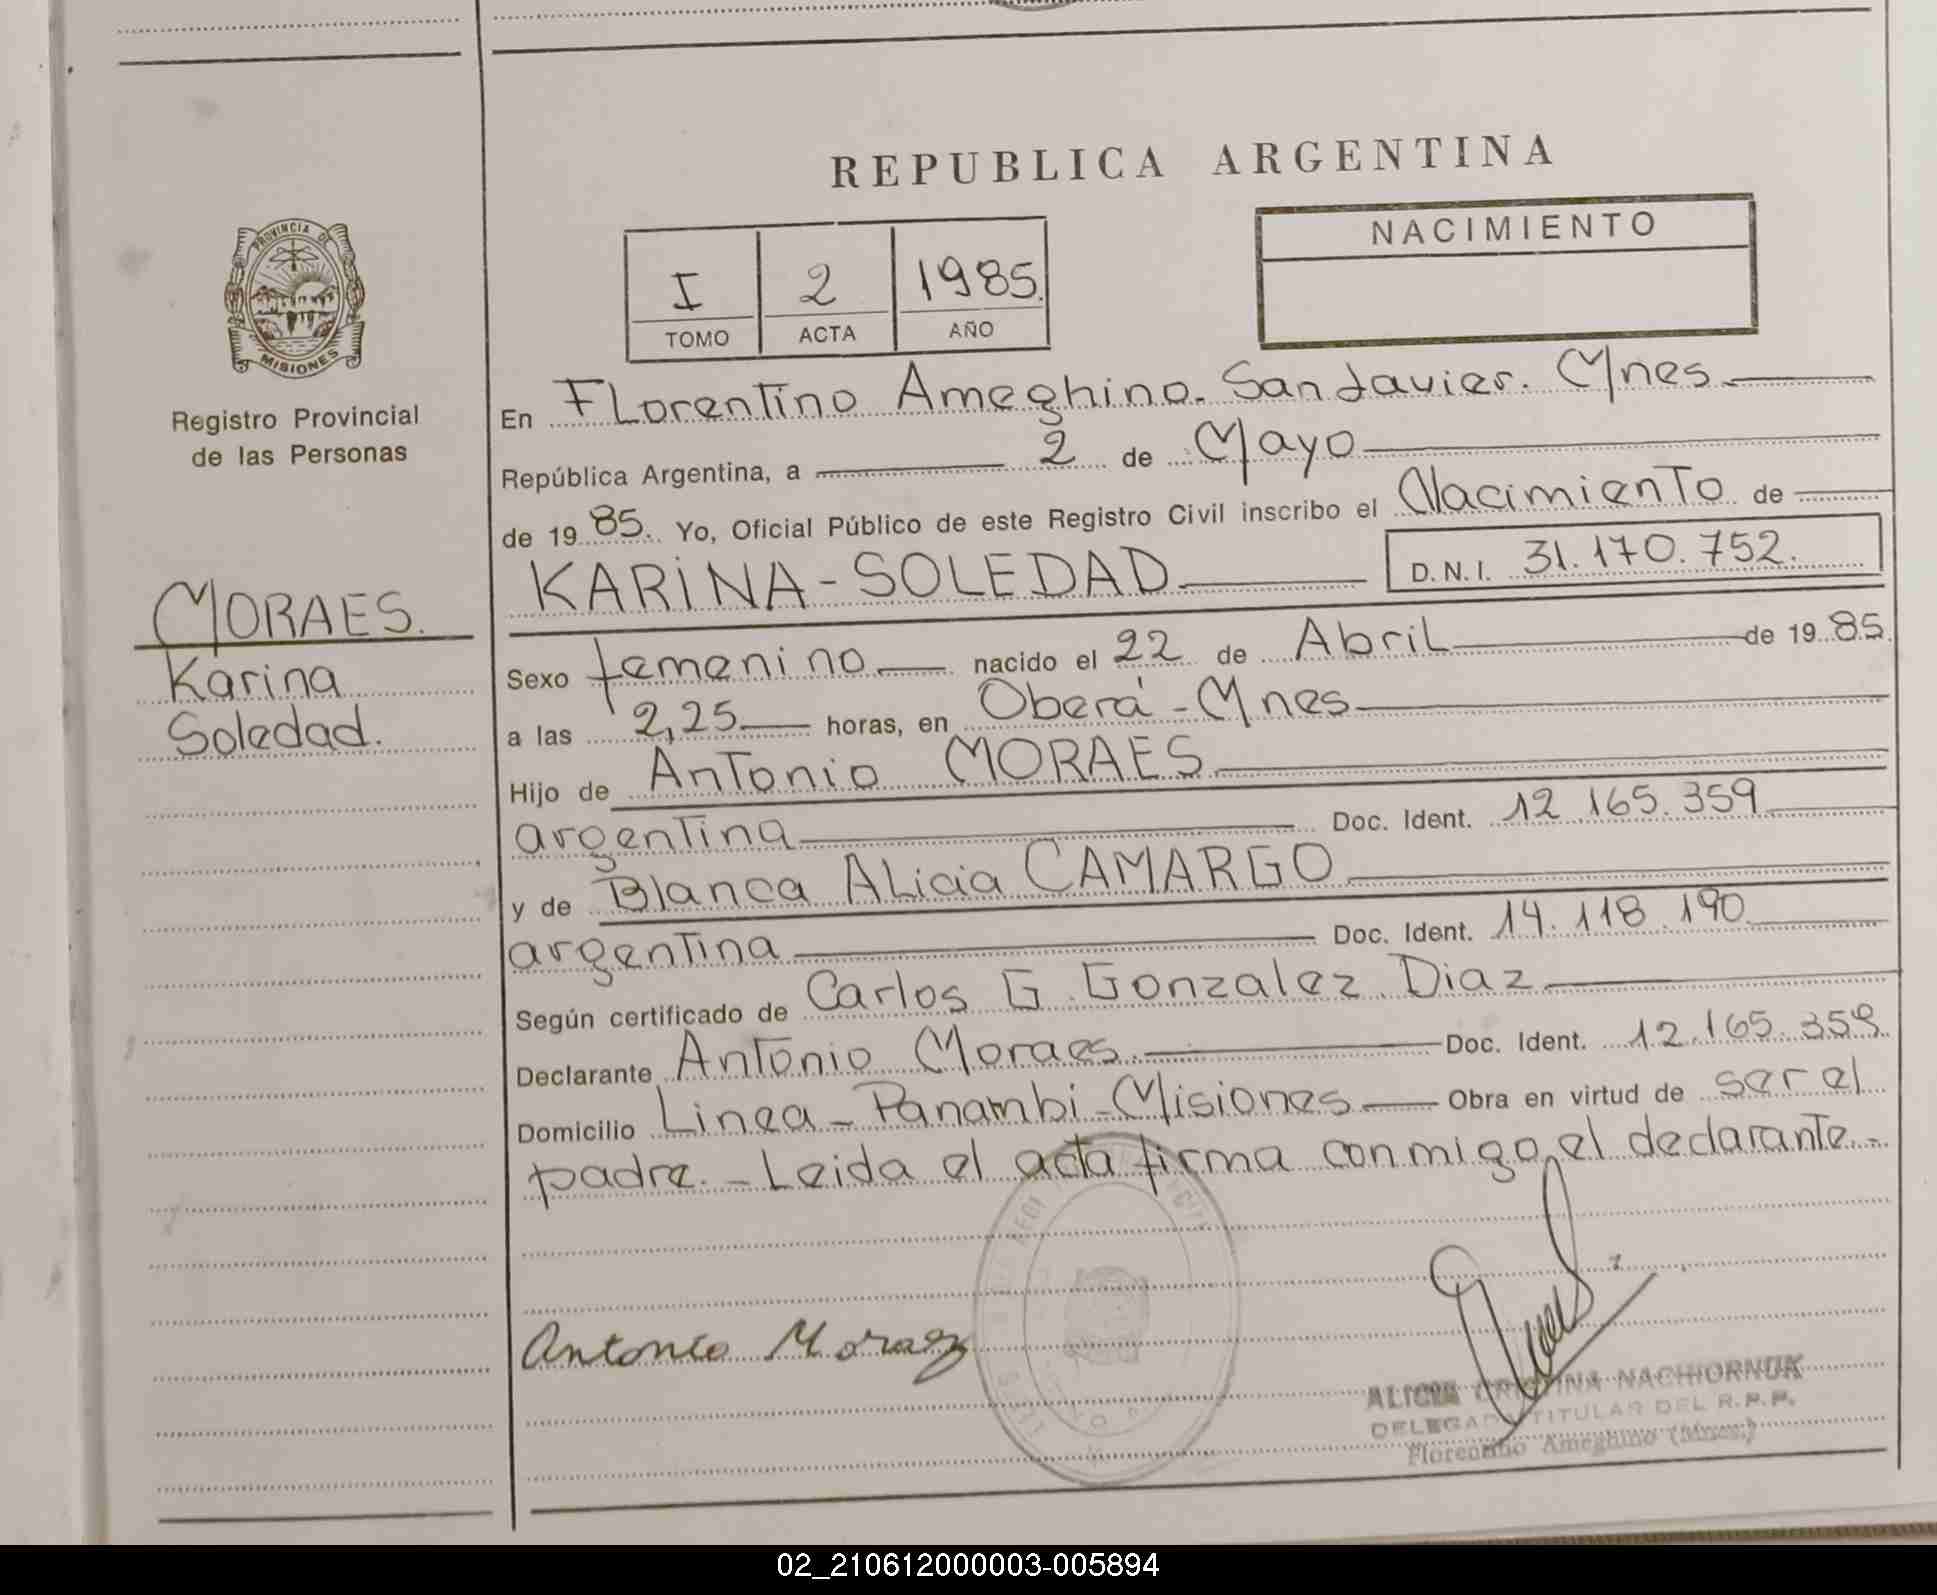 REPUBLICA ARGENTINA
NACIMIENTO
I 2 1985.
TOMO ACTA AÑO
PROVINCIA DE
MISIONES
Registro Provincial
de las Personas
MORAES.
Karina
Soledad.
En Florentino Ameghino. San Javier. Mnes.
República Argentina, a 2 de Mayo
de 19 85. Yo, Oficial Público de este Registro Civil inscribo el Nacimiento de
KARINA-SOLEDAD D.N.I. 31.170.752.
Sexo femenino nacido el 22 de Abril de 19 85.
a las 2,25 horas, en Oberá-Mnes
Hijo de Antonio MORAES
argentina Doc. Ident. 12.165.359
y de Blanca Alicia CAMARGO
argentina Doc. Ident. 14.118.190
Según certificado de Carlos G. Gonzalez Diaz
Declarante Antonio Moraes. Doc. Ident. 12.165.359.
Domicilio Linea-Panambi-Misiones Obra en virtud de ser el
padre.- Leida el acta firma conmigo el declarante.-
Antonio Moraez
ALICIA CRISTINA NACHIORNUK
DELEGADA TITULAR DEL R.P.P.
Florentino Ameghino (Mnes.)
02_210612000003-005894